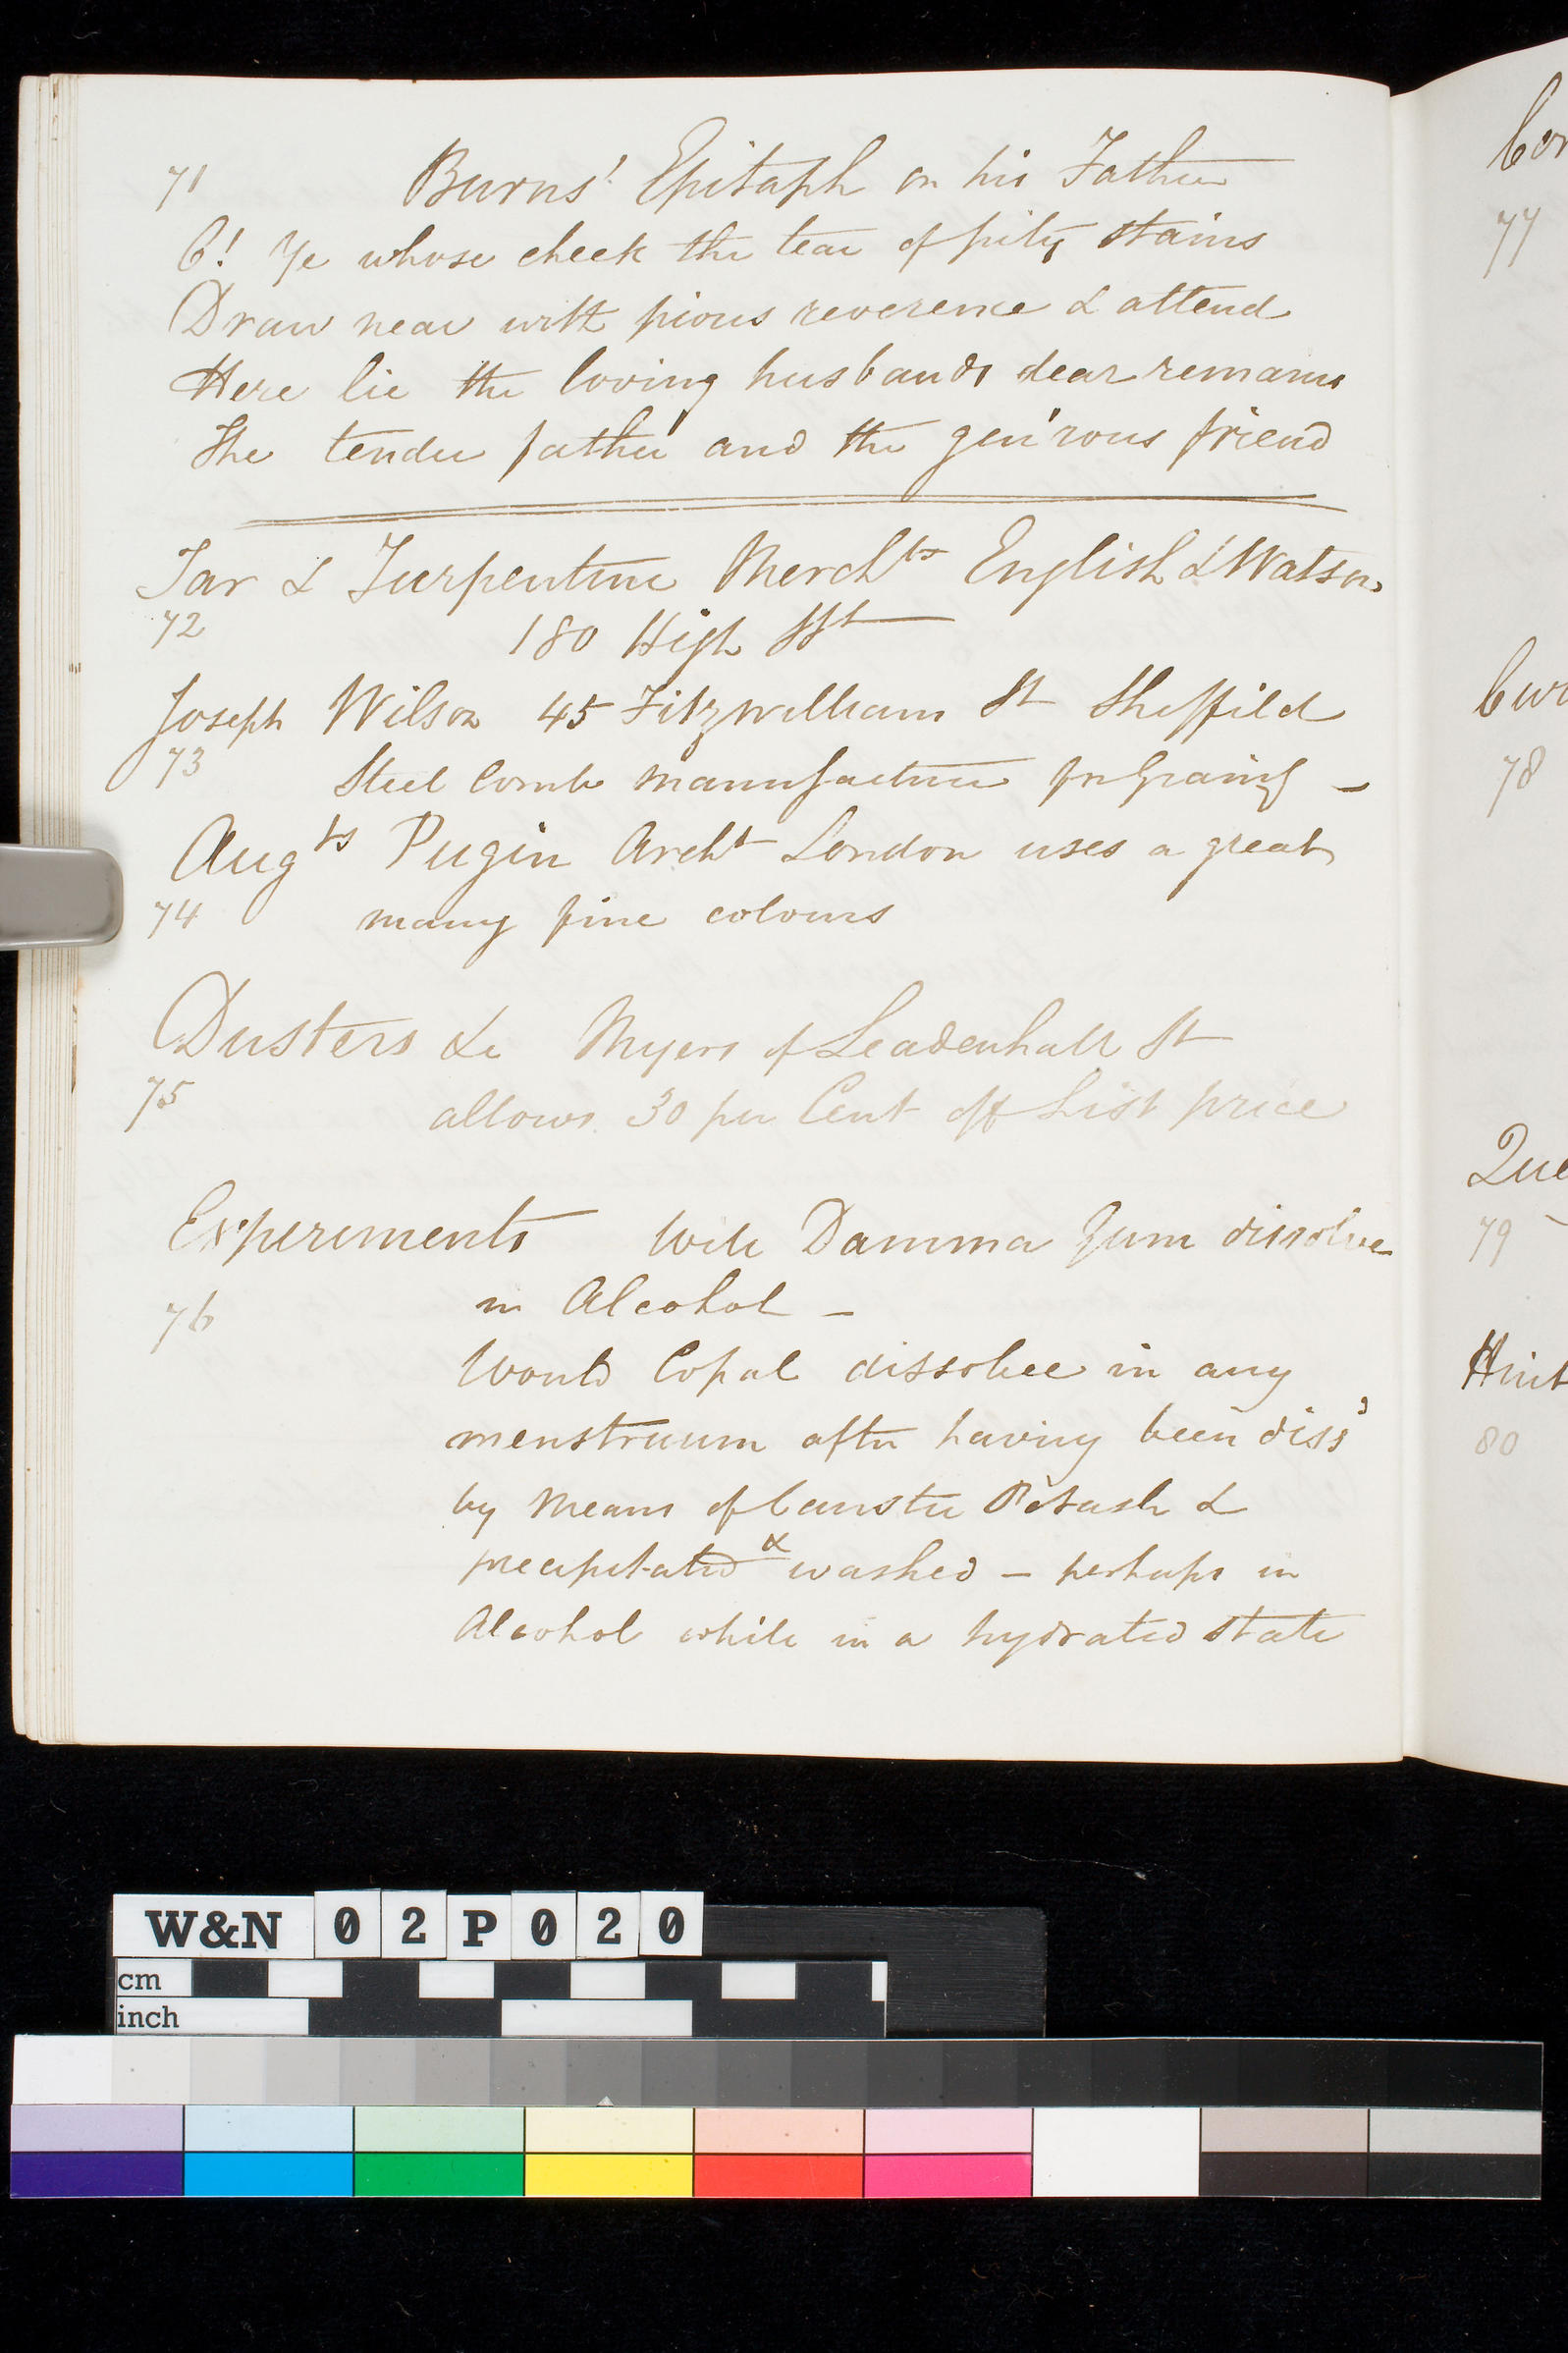 71 Burns' Epitaph on his Father
O! Ye whose cheek the tear of pity stains
Draw near with pious reverence & attend
Here lie the loving husbands dear remains
The tender father and the gen'rous friend
Tar & Turpentine Merchts English & Watson
72 180 High St
Joseph Wilson 45 Fitzwilliam St Sheffield
73 Steel Comb manufacturer for Graining -
Augts Pugin Archt London uses a great
74 many fine colours
Dusters &c Myers of Leadenhall St
75 allows 30 per Cent off List price
Experiments Will Damma Gum dissolve
76 in Alcohol -
Would Copal dissolve in any
menstruum after having been dissd
by means of Caustic Potash &
precipitated & washed - perhaps in
Alcohol while in a hydrated state
77
78
79
Hint
80
W&N 02P020
cm
inch